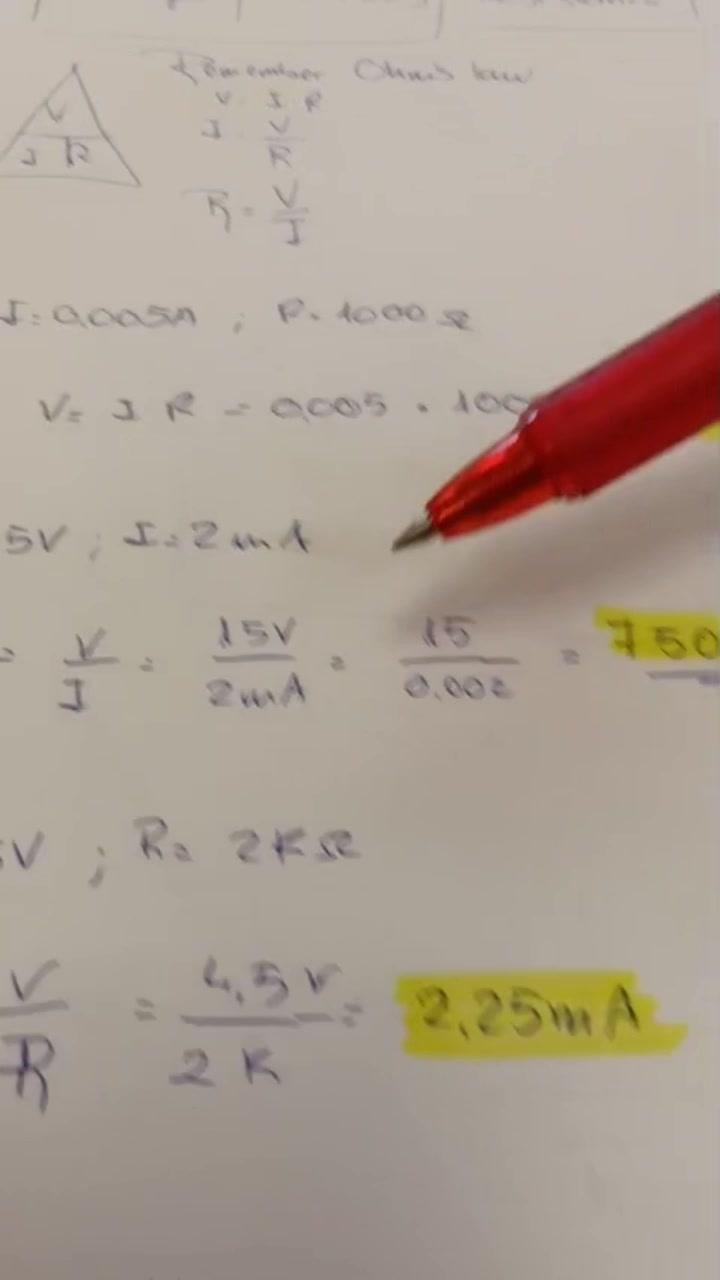 Remember Ohm's law
V
I R
V I R
I V
R
R = V
I
I = 0.005A ; R = 1000 Ω
V = I R = 0,005 . 100
5V ; I = 2mA
= V/I = 15V/2mA = 15/0.002 = 750
V ; R = 2KΩ
V/R = 4,5V/2K = 2,25mA